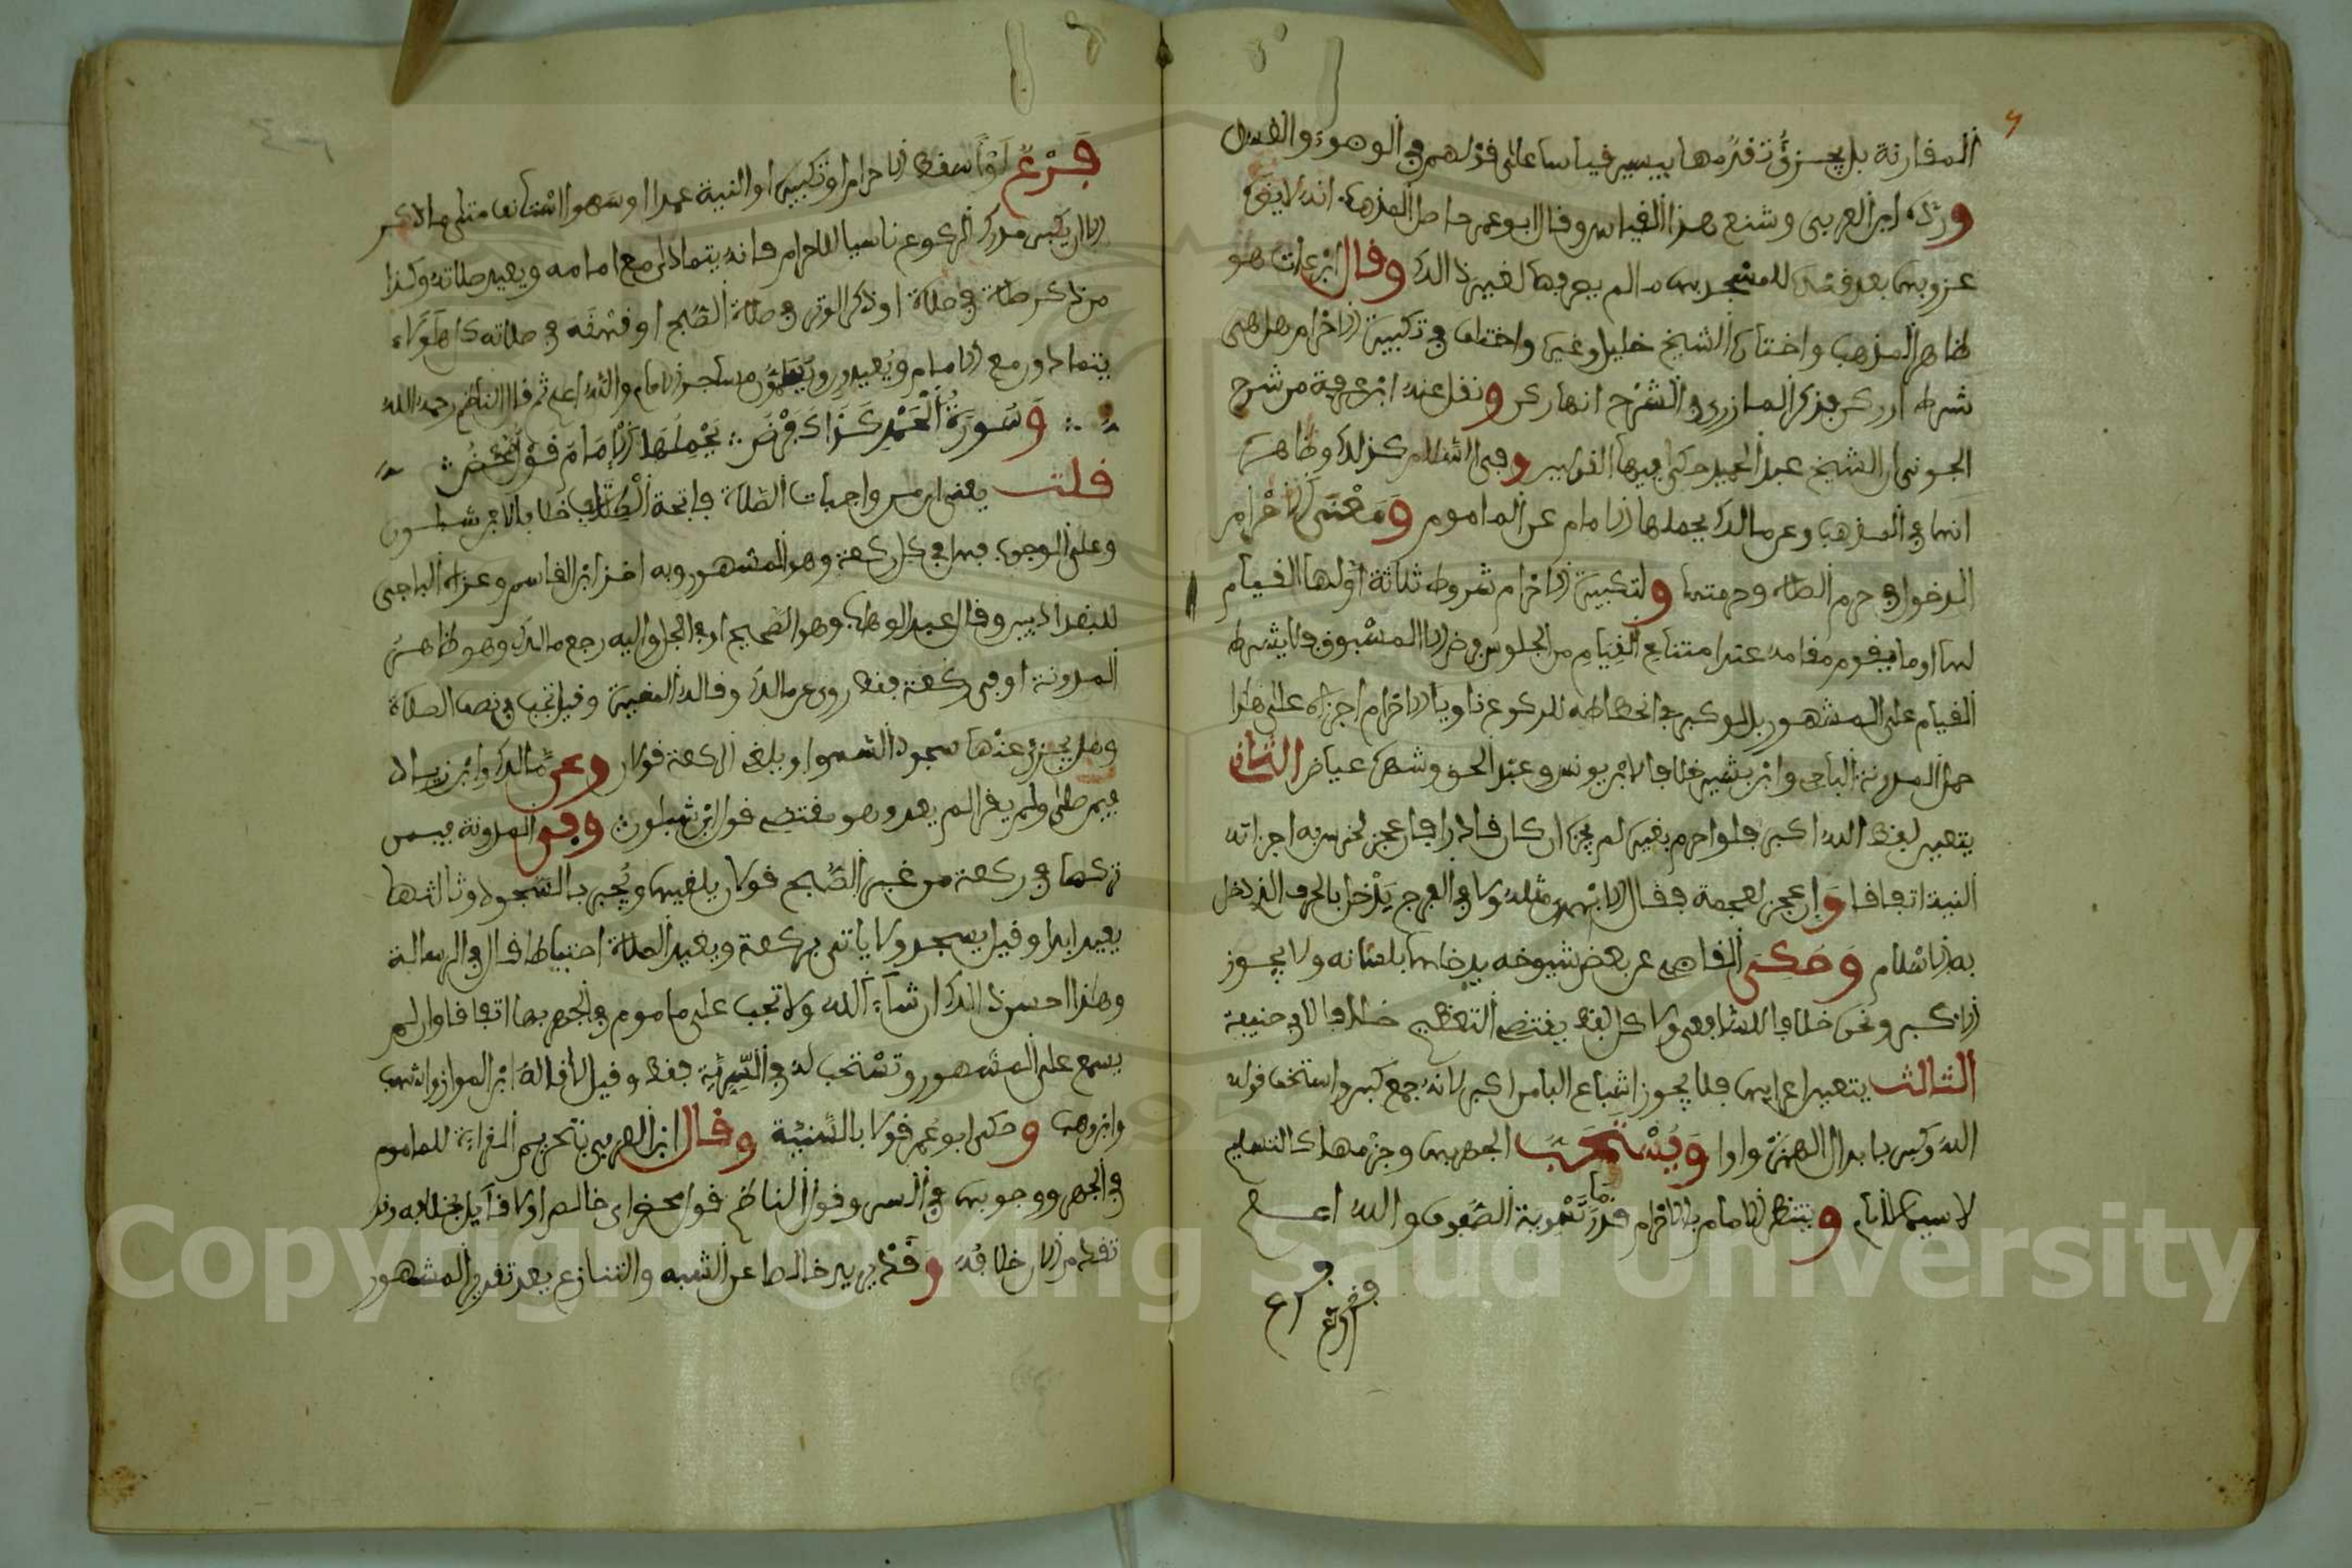 المقارنة بل يجزئ تقدمها بيسير قياسا على قولهم في الوضوء والغسل
ورده ابن العربي وشنع هذا القياس وقال ابو عمر حاصل المذهب انه لا يضر
عزوبها بعد قصده للمسجد ما لم يصرفها لغير ذالك وقال ابن عات هو
ظاهر المذهب واختاره الشيخ خليل وغيره واختلف في تكبيرة الاحرام هل هي
شرط او ركن فذكر المازري في الشرح انها ركن ونقل عنه ابن عرفة من شرح
الجوزقي ان الشيخ عبد الحميد حكى فيها القولين وفي السلام كذلك وظاهره
انها في المذهب وعن مالك يحملها الامام عن الماموم ومعنى الاحرام
الدخول في حرم الصلاة وحرمتها ولتكبيرة الاحرام شروط ثلاثة اولها القيام
لها او ما يقوم مقامه عند امتناع القيام من الجلوس في ض الا المسبوق فلا يشترط
القيام على المشهور بل لو كبر في انحطاطه للركوع ناويا الاحرام اجزاه على هذا
حمل المدونة الباجي وابن بشير خلافا لابن يونس وعبد الحق وشهره عياض الثاني
يتعين لفظ الله اكبر فلو احرم بغيره لم يجزه ان كان قادرا فان عجز لخرس به اجزاته
النية اتفاقا وان عجز لعجمة فقال الابهري مثله ولابي الفرج يدخل بالحرف الذي دخل
به الاسلام وحكى القاضي عن بعض شيوخه يدخلها بلسانه ولا يجوز
الاكبر ونحوه خلافا للشافعي ولا كل لفظ يقتضي التعظيم خلافا لابي حنيفة
الثالث يتعين اعرابها فلا يجوز اشباع البا من اكبر لانه جمع كبر واستخف قوله
الله وكبر بابدال الهمزة واوا ويستحب الجهر بها وجزمها كالتسليم
لا سيما الامام وينتظر الامام بالاحرام قدر ما تسوية الصفوف والله اعلم
فرع
فرع لو اسقط الاحرام او تكبيره او النية عمدا او سهوا استانف متى ما ذكر
الا ان يكبر مدرك الركوع ناسيا للاحرام فانه يتمادى مع امامه ويعيد صلاته وكذا
من ذكر صلاة في صلاة او ذكر الوتر في صلاة الصبح او قهقه في صلاته كل هؤلاء
يتمادون مع الامام ويعيدون مساجز الامام والله اعلم ثم قال الناظم رحمه الله
وسورة الحمد كذاك فرض يحملها الامام قول محض
قلت يعني ان من واجبات الصلاة فاتحة الكتاب خلافا لابن شبلون
وعلى الوجوب فهل في كل ركعة وهو المشهور وبه اخذ ابن القاسم وعزاه الباجي
للبغداديين وقال عبد الوهاب وهو الصحيح او في الجل واليه رجع مالك وهو ظاهر
المدونة او في ركعة فقط روي عن مالك وقاله المغيرة وقيل تجب في نصف الصلاة
وهل يجزئ عنها سجود السهو او يلغي الركعة قولان وعن مالك وابن زياد
فيمن صلى ولم يقرا لم يعد وهو مقتضى قول ابن شبلون وفي المدونة فيمن
تركها في ركعة من غير الصبح قولان يلغيها ويجبر بالسجود وثالثها
يعيد ابدا وقيل يسجد ولا ياتي بركعة ويعيد الصلاة احتياطا قال في الرسالة
وهذا احسن ذالك ان شاء الله ولا تجب على ماموم في الجهر بها اتفاقا وان لم
يسمع على المشهور وتستحب له في السرية فقط وقيل لا قاله ابن المواز واشهب
وابن وهب وحكى ابو عمر قولا بالسنية وقال ابن العربي بتحريم القراءة للماموم
في الجهر ووجوبها في السر وقول الناظم قول محض اي خالص او لا قايل بخلافه وقد
تقدم من الان خلافه وقد يريد خالصا عن الشبه والتنازع بعد تقدير المشهور
Copyright © King Saud University